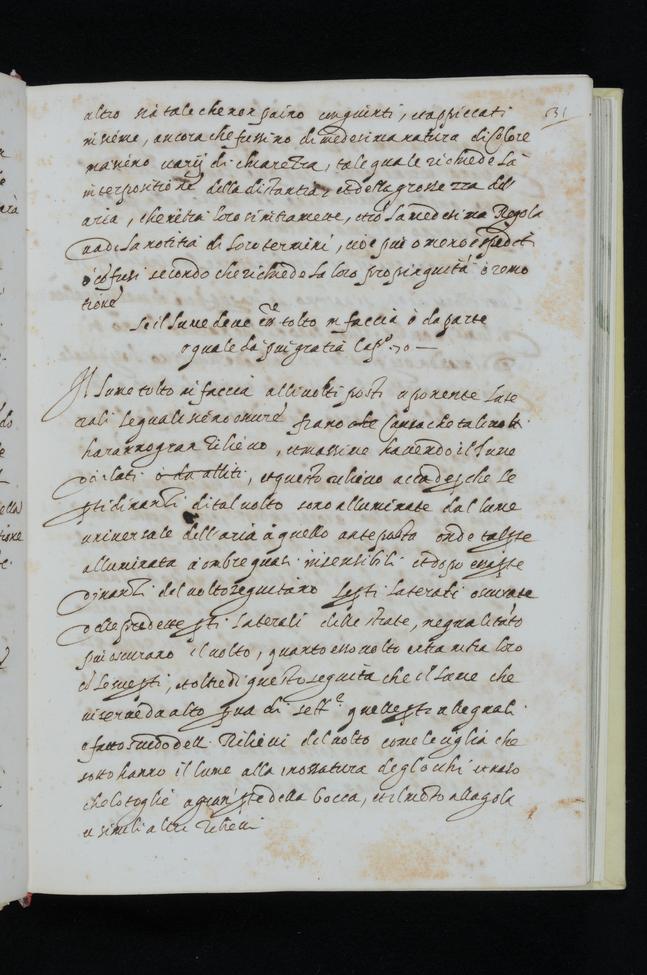 131
altro sia tale che non paino congiunti, et appiccati
insieme, ancora che fussino di medesima natura di Colore
ma sieno varij di chiarezza, tale quale richiede la
interpositione della distantia, et della grossezza dell'
aria, che entra loro si mitiamente, et cò la medesima Regola
vadi la notitia di loro termini, cioè più o meno espediti
ò còfusi secondo che richiede la loro propinquità ò remo
tione
Se il lume deve e[ss]re tolto in faccia ò da parte
o quale da più gratia Cap.º 70 —
Il lume tolto in faccia alli volti posti a parete late
rali le quali sieno oscure fiano causa che tali volti
haranno gran rilievo, et massime havendo il lume
dà alto, et questo rilievo accade, che le
pti dinanzi di tal volto sono alluminate dal lume
universale dell'aria à quello anteposto onde tal pte
alluminata à ombre quasi insensibili et dopo essa pte
dinanzi del volto seguitano le pti laterali oscurate
dalle predette pti laterali delle strate, ne qualitato
più oscurano il volto, quanto esso volto entra infra loro
cò le sue pti, et oltre di questo seguita che il lume che
ne scende da alto priva di se tutte quelle pti alle quali
è fatto scudo dalli Rilievi del volto come le ciglia che
sottrahano il lume alla incassatura degl'occhi et naso
che lo toglie a gran pte della bocca, et il mento alla gola
et simili altri rilievi